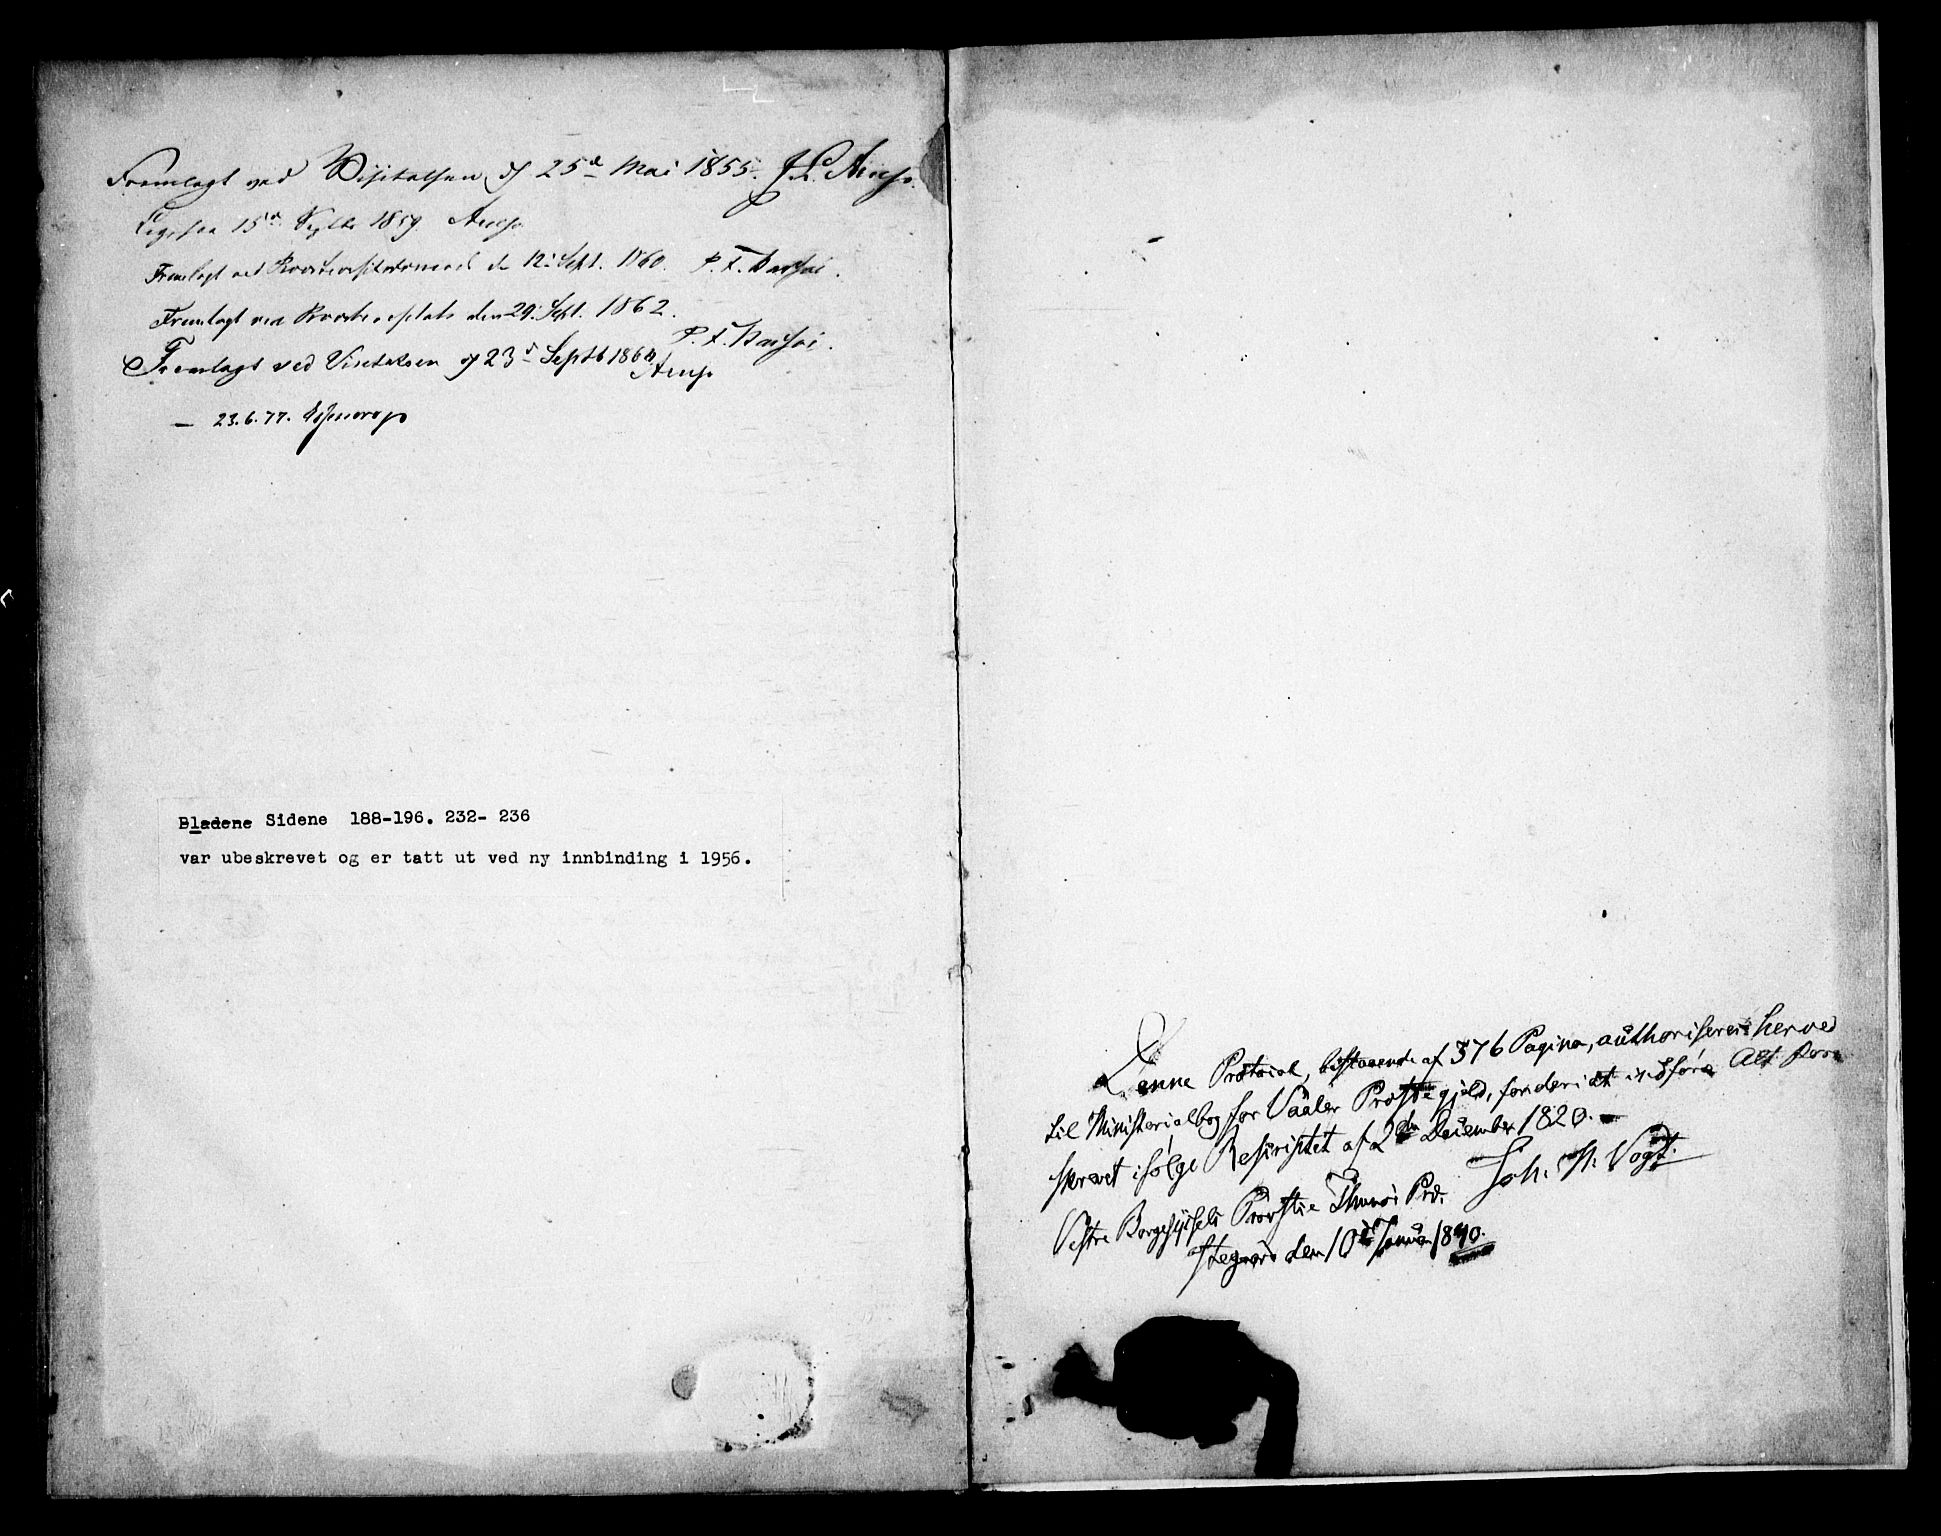 Fremlagt ved Visitatsen d 25d Mai 1855. J. L. Arup.
Ligesaa 15d Septbr 1859 Arup
Fremlagt ved d. 12. Sept. 1860. P. F. Bassøe.
Fremlagt ved Provstevisitats den 29. Sept. 1862.
P. F. Bassøe.
Fremlagt ved Visitatsen d 23d Septb 1864 Arup
— 23.6.77. Essendrop
Bladene Sidene 188-196. 232- 236
var ubeskrevet og er tatt ut ved ny innbinding i 1956.
Denne Protocol, bestaaende af 376 Pagina, authoriseres herved
til Ministerialbog for Vaaler Præstegjeld, for deri at indføre Alt fore
skrevet ifølge Rescriptet af 2den December 1820. –
Vestre Borgesyssels Provstie Thunøe Joh. H. Vogt.
stegaard den 10de Januar 1840.